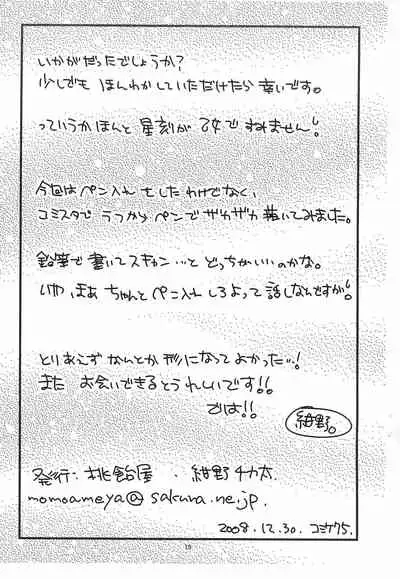 いかがだったでしょうか?
少しでも ほんわかしていただけたら 幸いです。
っていうかほんと 星刻が 乙女で すみません!
今回は ペン入れ をしたわけでなく、
コミスタで うつから ペンで ザカザカ 描いてみました。
鉛筆で 書いて スキャン…と どっちがいいのかな。
いや、まあ ちゃんと ペン入れ しろよって 話しなんですが!
とりあえず なんとか 形になって よかった…!
また お会いできると うれしいです!!
では!!
紺野。
発行:桃飴屋 . 紺野 チカ太
momoameya@sakura.ne.jp.
2008.12.30. コミケ75.
19